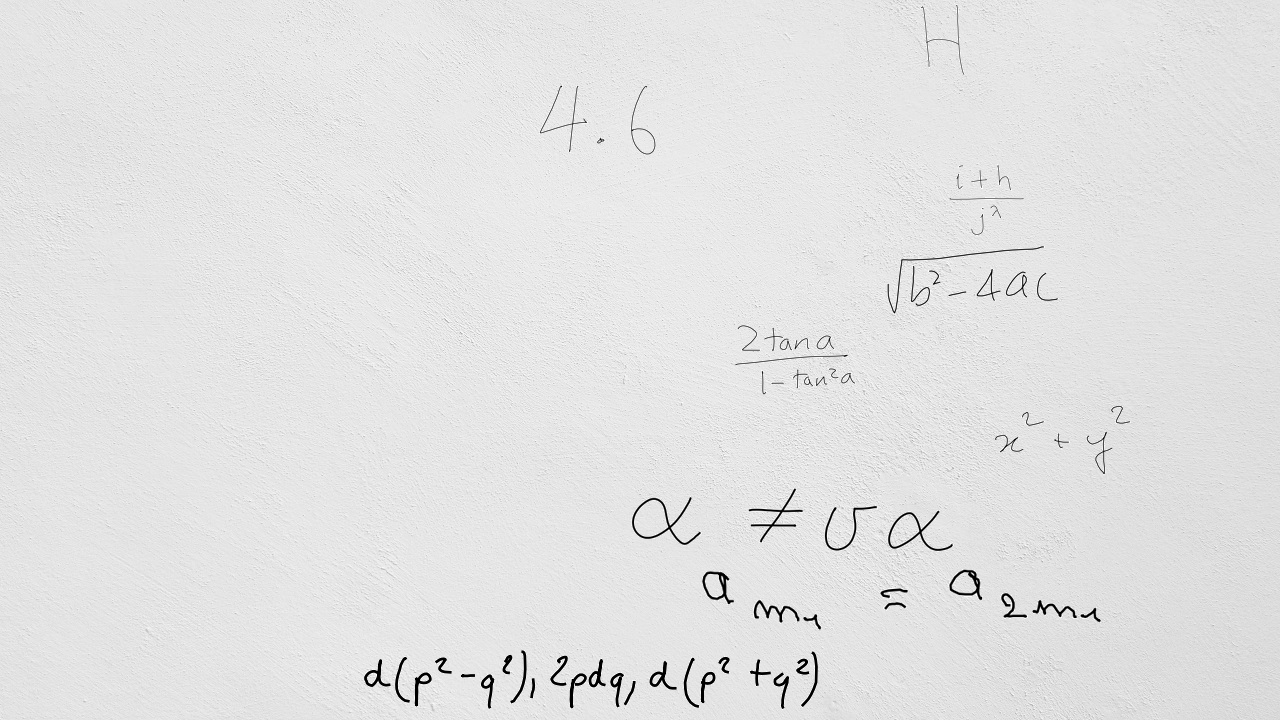 H
4.6
\frac{i+h}{j^{\lambda}}
\sqrt{b^2-4ac}
\frac{2\tan a}{1-\tan^2 a}
x^2+y^2
\alpha \neq \sigma\alpha
a_{m_1} = a_{2m_1}
d(p^2-q^2), 2pdq, d(p^2+q^2)